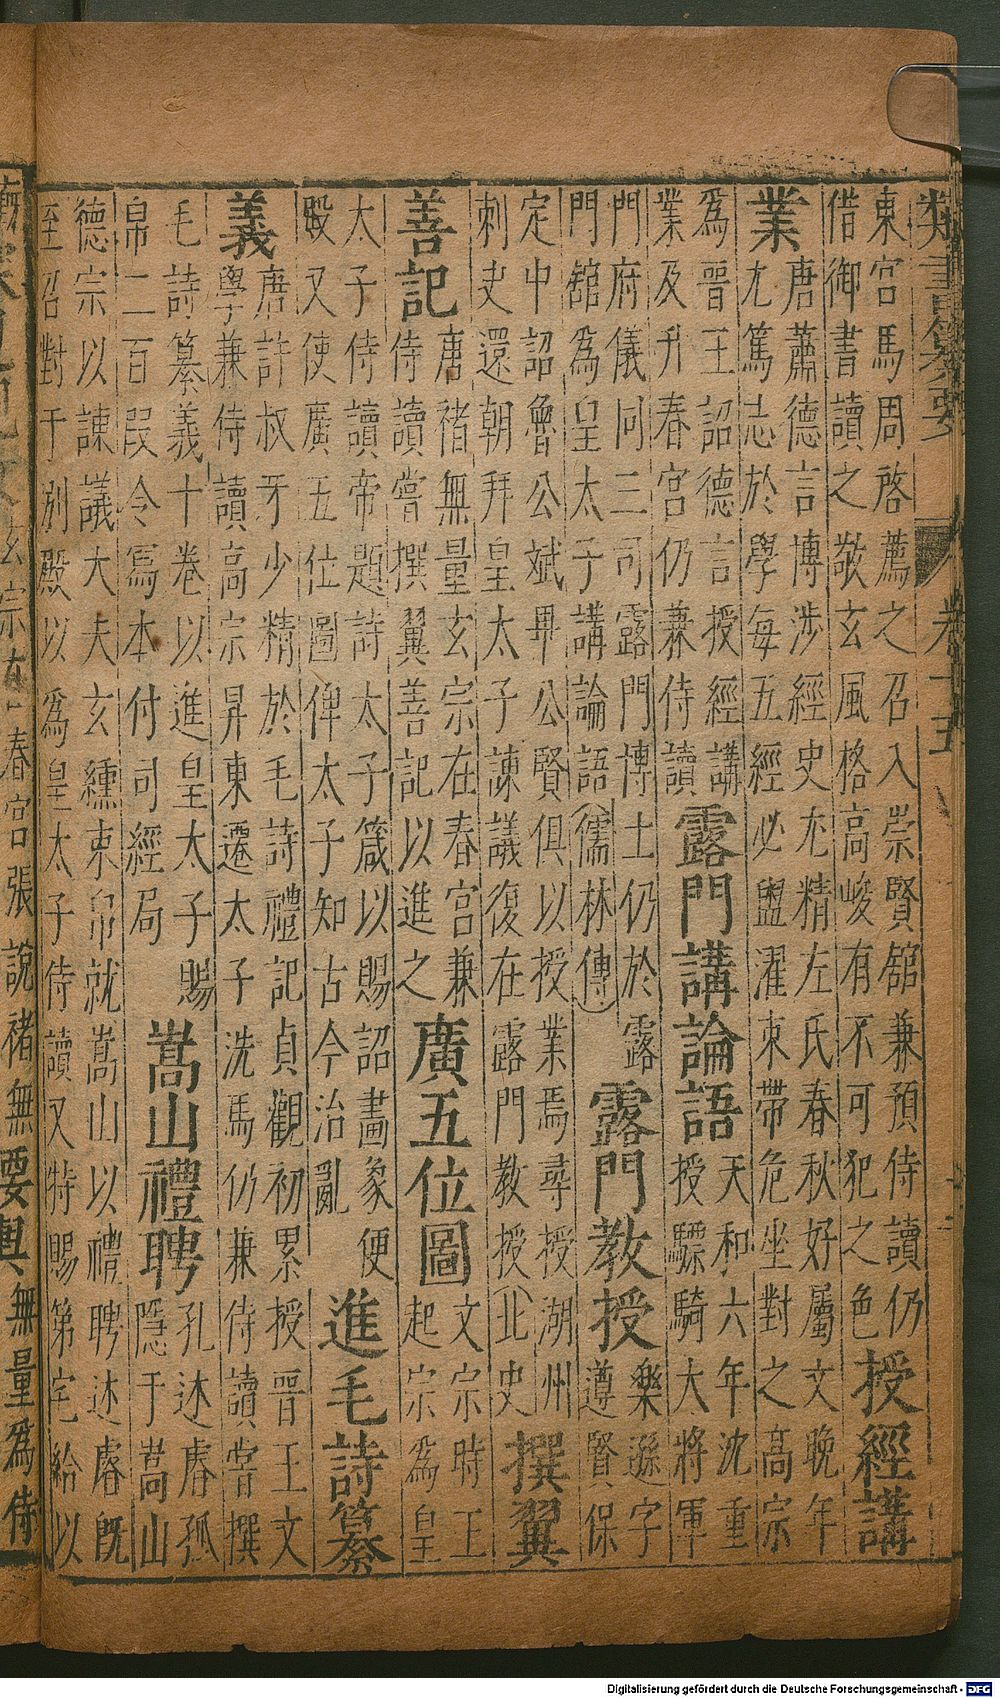 類書纂要 卷十五
東宮馬周啓薦之召入崇賢舘兼預侍讀仍
借御書讀之敬玄風格高峻有不可犯之色
授經講
業
唐蕭德言博涉經史尤精左氏春秋好屬文晚年
尤篤志於學每五經必盥濯束帶危坐對之高宗
為晉王詔德言授經講
業及升春宮仍兼侍讀
露門講論語
天和六年沈重
授驃騎大將軍
門府儀同三司露門博士仍於露
門舘為皇太子講論語(儒林傳)
露門教授
樂遜字
遵賢保
定中詔魯公斌畢公賢俱以授業焉尋授湖州
刺史還朝拜皇太子諫議復在露門教授(北史
撰翼
善記
唐褚無量玄宗在春宮兼
侍讀嘗撰翼善記以進之
廣五位圖
文宗時王
起宗為皇
太子侍讀帝題詩太子箴以賜詔畫象便
殿又使廣五位圖俾太子知古今治亂
進毛詩纂
義
唐許叔牙少精於毛詩禮記貞觀初累授晉王文
學兼侍讀高宗昇東遷太子洗馬仍兼侍讀嘗撰
毛詩纂義十卷以進皇太子賜
帛二百段令寫本付司經局
嵩山禮聘
孔述睿孤
隱于嵩山
德宗以諫議大夫玄纁束帛就嵩山以禮聘述睿既
至召對于別殿以為皇太子侍讀又特賜第宅給以
玄宗在春宮張說褚無
要輿
無量為侍
Digitalisierung gefördert durch die Deutsche Forschungsgemeinschaft - DFG